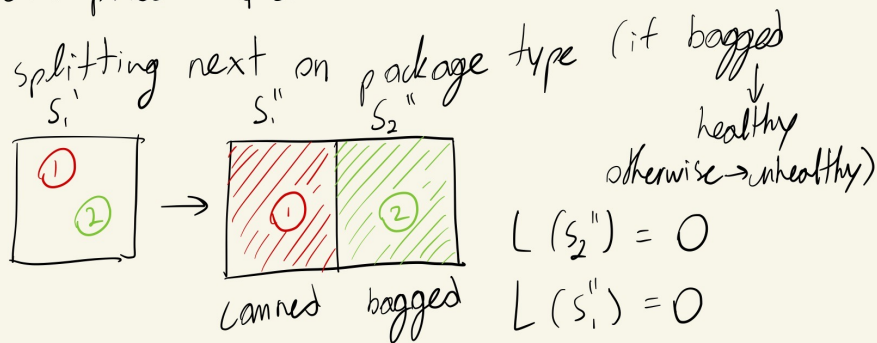 splitting next on package type (if bagged
↓
healthy
otherwise → unhealthy)
S₁' S₁'' S₂''
① ② → ① ②
L(S₂'') = 0
canned bagged
L(S₁'') = 0